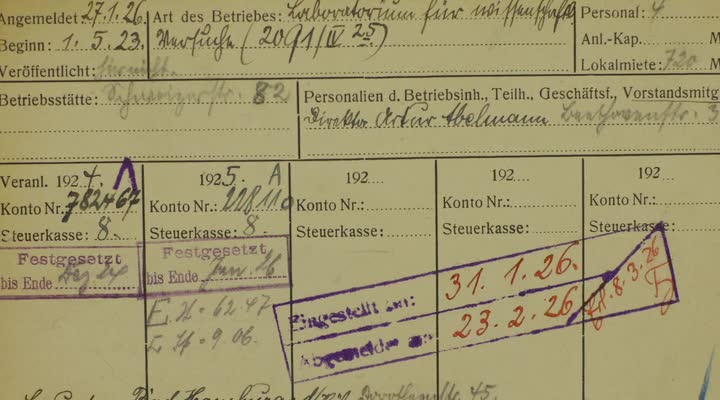 Angemeldet: 27.1.26. Art des Betriebes: Laboratorium für wissenschaftl. Personal: 4
Beginn: 1.5.23. Versuche (2091/IV 25) Anl.-Kap. M
Veröffentlicht: Lokalmiete: 720 M
Betriebsstätte: Schweizerstr. 82 Personalien d. Betriebsinh., Teilh., Geschäftsf., Vorstandsmitg
Direktor Artur Abelmann Beethovenstr. 3
Veranl. 1924. 1925. A 192.... 192.... 192....
Konto Nr.: 782467 Konto Nr.: 228110 Konto Nr.: Konto Nr.: Konto Nr.:
Steuerkasse: 8. Steuerkasse: 8. Steuerkasse: Steuerkasse: Steuerkasse:
Festgesetzt Festgesetzt
bis Ende Dez 24 bis Ende Jan. 26
Eingestellt am: 31.1.26.
Abgemeldet am: 23.2.26 8.3.26
62.47
9.06.
45.